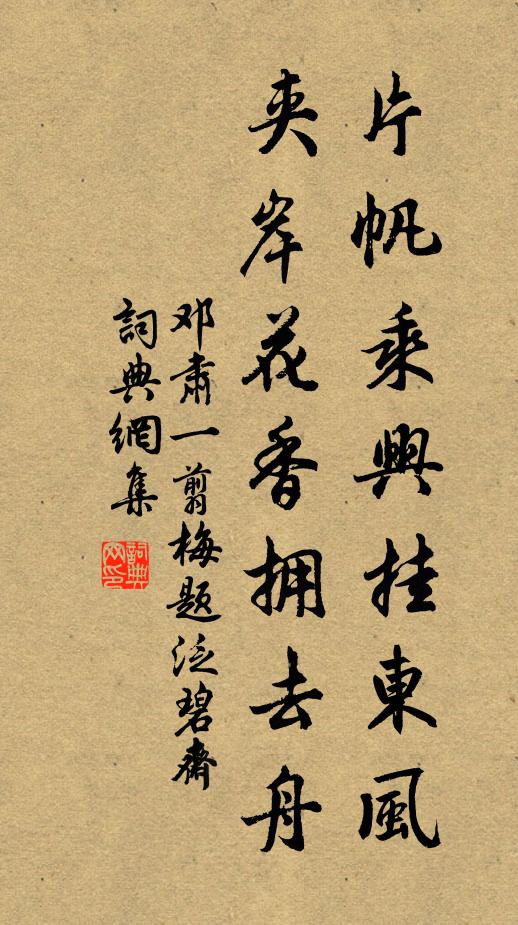 片帆乘興挂東風
夾岸花香拥去舟
邓肃一剪梅题泛碧齋
詞典網集
詞典網印